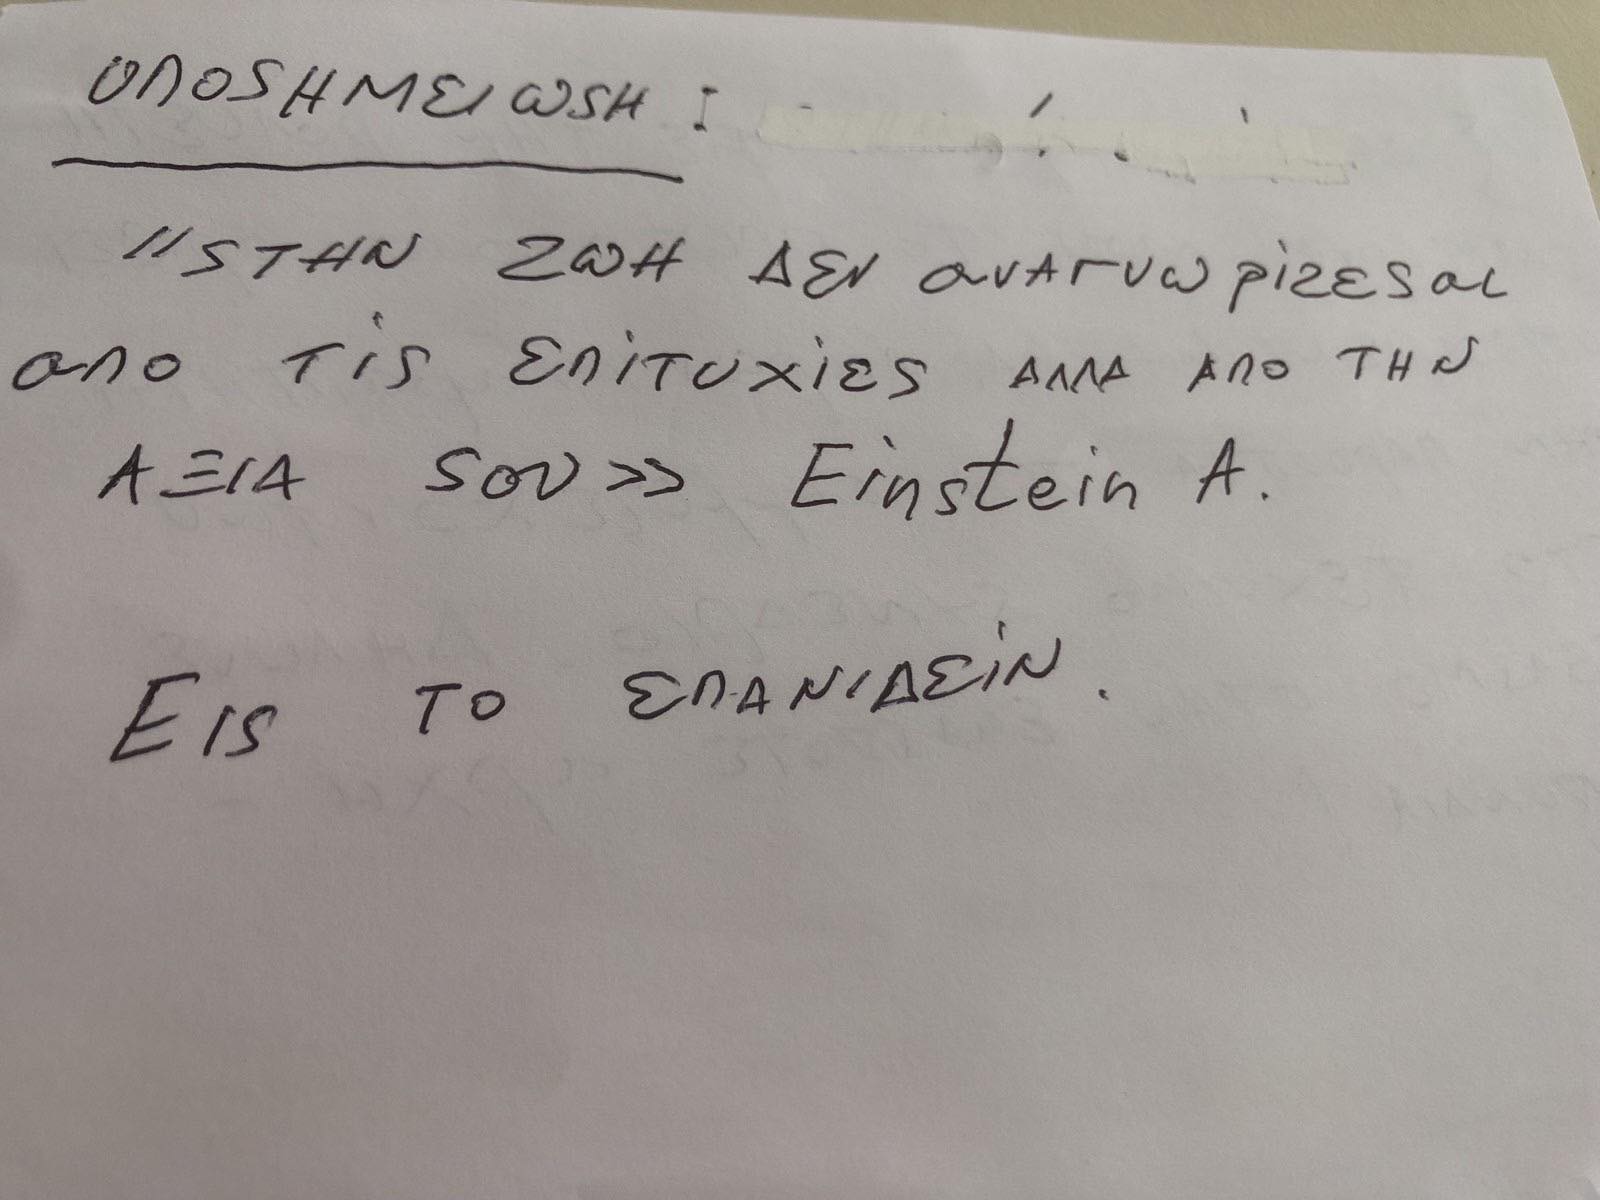 ΥΠΟSΗΜΕΙωSΗ :
"SΤΗΝ ΖωΗ ΔΕΝ αναΓνωρίζεSαι
απο τίS ΕπίτυχίεS ΑΛΛΑ ΑΠΟ ΤΗΝ
ΑΞΙΑ Sου>> Einstein A.
ΕιS ΤΟ ΕΠΑΝΙΔΕίΝ.